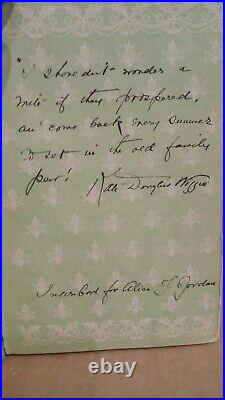 "I shouldn't wonder a
mite if they prospered,
an' come back every summer
to set in the old family
pew!" Kate Douglas Wiggin
Inscribed for Alice T. Jordan